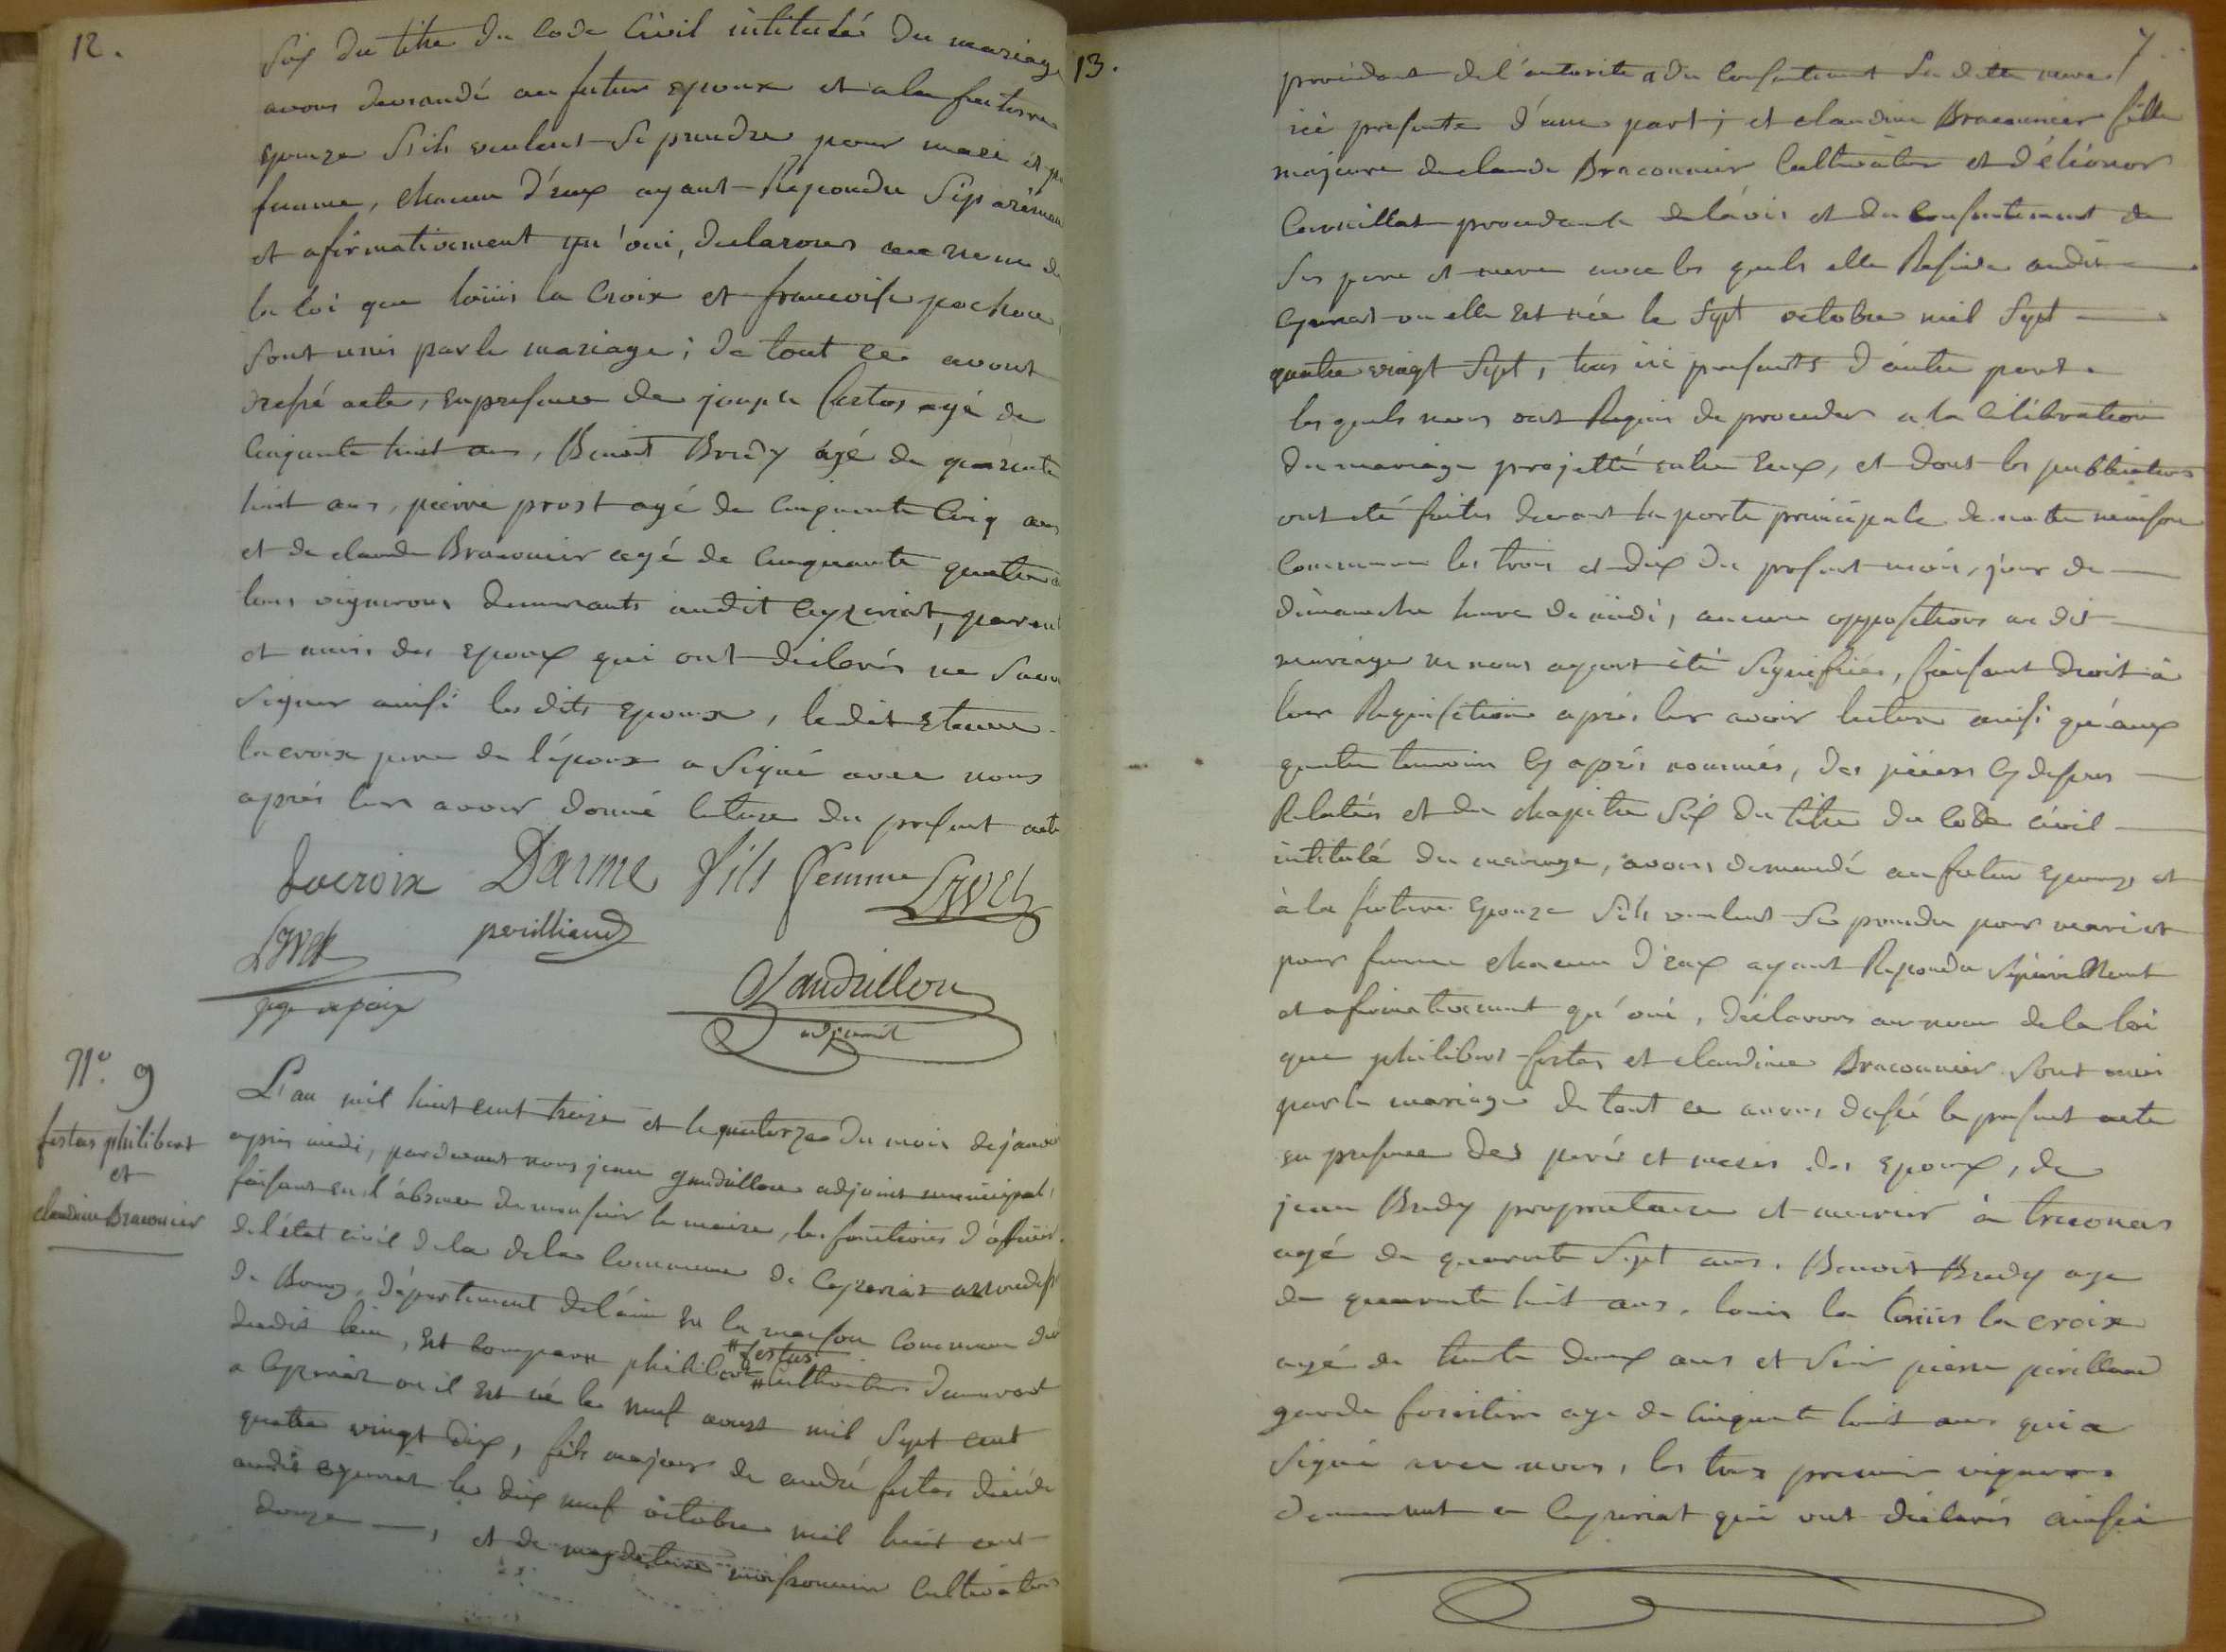 12.
Six du titre du code Civil intitulé du mariage
avons demandé au futur epoux et a la future
Epouze S'ils veulent Se prendre pour mari et
femme, chacun d'eux ayant Repondu Séparément
et afirmativement qu'oui, declarons au nom de
la loi que loüis la Croix et francoise pochon
Sont unis par le mariage; de tout ce avont
dressé acte, en presence de joseph festas agé de
Cinquante huit ans, Benoit Bredy agé de quarente
huit ans, pierre prost agé de cinquente Cinq ans
et de claude Braconnier agé de cinquante quatre
tous vignerons demeurants audit Ceyzeriat, parents
et amis des epoux qui ont déclarés ne Savoir
Signer ainsi les dits epoux, le dit Etienne
lacroix pere de l'époux a Signé avec nous
aprés leur avoir donné lecture du present acte
Lacroix Darme fils femme Livet
Livet perilliaud
juge de paix
Gandrillon
adjoint
N.º 9
festas philibert
et
claudine Braconnier
L'an mil huit cent treize et le quatorze du mois de janvier
aprés midi, pardevant nous jean gandrillon adjoint municipal,
faisant en l'absence de monsieur le maire, les fonctions d'officier
de l'état civil de la de la Commune de Ceyzeriat arrondisst
de Bourg, département de l'ain en la maison Commune
dudit lieu, Est comparu philibert "festas" cultivateur demeurant
a Ceyzeriat ou il Est né le neuf aoust mil Sept cent
quatre vingt dix, fils majeur de andré festas décédé
audit ceyzeriat le dix neuf octobre mil huit cent
douze —, et de magdelaine moissonnier Cultivateur
13.
7
procédant de l'autorite a du Consentement de ditte mere
ici presente d'une part; et claudine Braconnier fille
majeure de claude Braconnier Cultivateur et d'éléonor
procedante de l'avis et du Consentement de
Ses pere et mere avec les quels elle Reside audit
Ceyzeriat ou elle Est née le Sept octobre mil Sept
quatre vingt Sept, tous ici presents d'autre part.
les quels nous ont Requis de proceder a la Célébration
du mariage projetté entre Eux, et dont les publications
ont été faites devant la porte principale de notre maison
Commune les trois et dix du present mois, jour de
dimanche heure de midi, aucune oppositions au dit
mariage ne nous ayant été Signifiée, faisant droit à
leur Requisition aprés leur avoir lecture ainsi qu'aux
quatre temoins Cy aprés nommés, des piéces Cy dessus
Relatées et du chapitre Six du titre du Code civil
intitulé du mariage, avons demandé au futur epoux et
à la future epouze S'ils veulent Se prendre pour mari et
pour femme chacun d'eux ayant Repondu Séparément
et afirmativement qu'oui, déclarons au nom de la loi
que philibert festas et claudine Braconnier Sont unis
par le mariage de tout ce avons dressé le present acte
en presence des peres et meres des epoux, de
jean Bredy propriétaire et à treconnas
agé de quarente Sept ans, Benoit Bredy age
de quarente huit ans, louis la Loüis la croix
agé de trente deux ans et Sieur pierre perilliaud
garde forestier age de cinquante huit ans qui a
Signé avec nous, les trois premiers vignerons
demeurant a Ceyzeriat qui ont déclarés ainsi